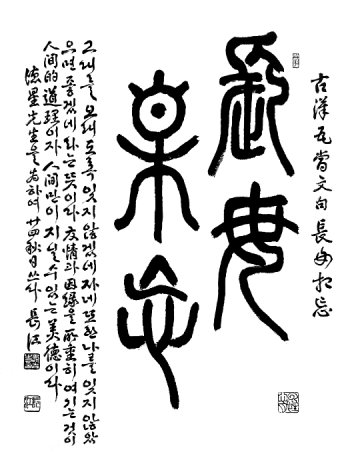 古漢瓦當文句 長毋相忘
長毋
相忘
그대를 오래도록 잊지 않겠네 자네 또한 나를 잊지 않았
으면 좋겠네라는 뜻이다 友情과 因緣을 所重히 여기는 것이
人間的 道理이자 人間만이 지닐 수 있는 美德이라
先生을 爲하여 廿四秋日 쓰다